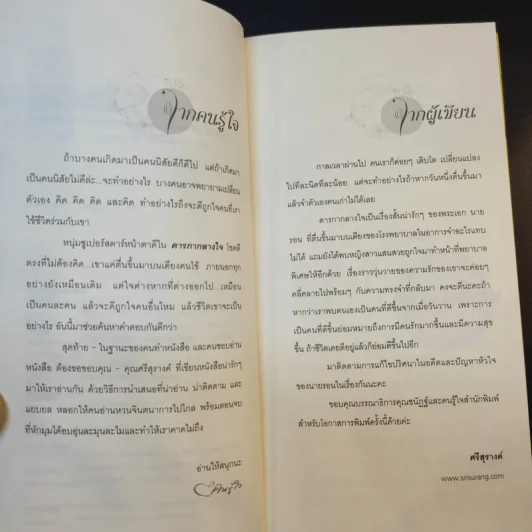 จากคนรู้ใจ
ถ้าบางคนเกิดมาเป็นคนนิสัยดีก็ดีไป แต่ถ้าเกิดมา
เป็นคนนิสัยไม่ดีล่ะ...จะทำอย่างไร บางคนอาจพยายามเปลี่ยน
ตัวเอง คิด คิด คิด และคิด ทำอย่างไรถึงจะดีถูกใจคนที่เรา
ใช้ชีวิตร่วมกับเขา
หนุ่มซูเปอร์สตาร์หน้าตาดีใน ดารกากลางใจ โชคดี
ตรงที่ไม่ต้องคิด...เขาแค่ตื่นขึ้นมาบนเตียงคนไข้ ภายนอกทุก
อย่างยังเหมือนเดิม แต่ใจต่างหากที่ต่างออกไป...เหมือน
เป็นคนละคน แล้วจะดีถูกใจคนอื่นไหม แล้วชีวิตเขาจะเป็น
อย่างไร อันนี้มาช่วยค้นหาคำตอบกันดีกว่า
สุดท้าย - ในฐานะของคนทำหนังสือ และคนชอบอ่าน
หนังสือ ต้องขอขอบคุณ - คุณศรีสุรางค์ ที่เขียนหนังสือน่ารักๆ
มาให้เราอ่านกัน ด้วยวิธีการนำเสนอที่น่าอ่าน น่าติดตาม และ
แยบยล หลอกให้คนอ่านหวนจินตนาการไปไกล พร้อมตอนจบ
ที่หักมุมได้อบอุ่นละมุนละไมและทำให้เราคาดไม่ถึง
อ่านให้สนุกนะ
คนรู้ใจ
จากผู้เขียน
กาลเวลาผ่านไป คนเราก็ค่อยๆ เติบโต เปลี่ยนแปลง
ไปทีละนิดทีละน้อย แต่จะทำอย่างไรถ้าหากวันหนึ่งตื่นขึ้นมา
แล้วจำตัวเองคนเก่าไม่ได้เลย
ดารกากลางใจเป็นเรื่องสั้นน่ารักๆ ของพระเอก นาย
รอน ที่ตื่นขึ้นมาบนเตียงของโรงพยาบาลในอาการจำอะไรแทบ
ไม่ได้ แถมยังได้พบหญิงสาวแสนสวยถูกใจมาทำหน้าที่พยาบาล
พิเศษให้อีกด้วย เรื่องราววุ่นวายของความรักของเขาจะค่อยๆ
คลี่คลายไปพร้อมๆ กับความทรงจำที่กลับมา คงจะดีนะคะถ้า
หากว่าเราพบตนเองเป็นคนที่ดีขึ้นจากเมื่อวันวาน เพราะการ
เป็นคนที่ดีขึ้นย่อมหมายถึงการมีคนรักมากขึ้นและมีความสุข
ขึ้น ถ้าชีวิตเคยดีอยู่แล้วก็ย่อมดีขึ้นไปอีก
มาติดตามการแก้ไขปริศนาในอดีตและปัญหาหัวใจ
ของนายรอนในเรื่องกันนะคะ
ขอบคุณบรรณาธิการคุณชนัฏฐ์และคนรู้ใจสำนักพิมพ์
สำหรับโอกาสการพิมพ์ครั้งนี้ด้วยค่ะ
ศรีสุรางค์
www.srisurang.com